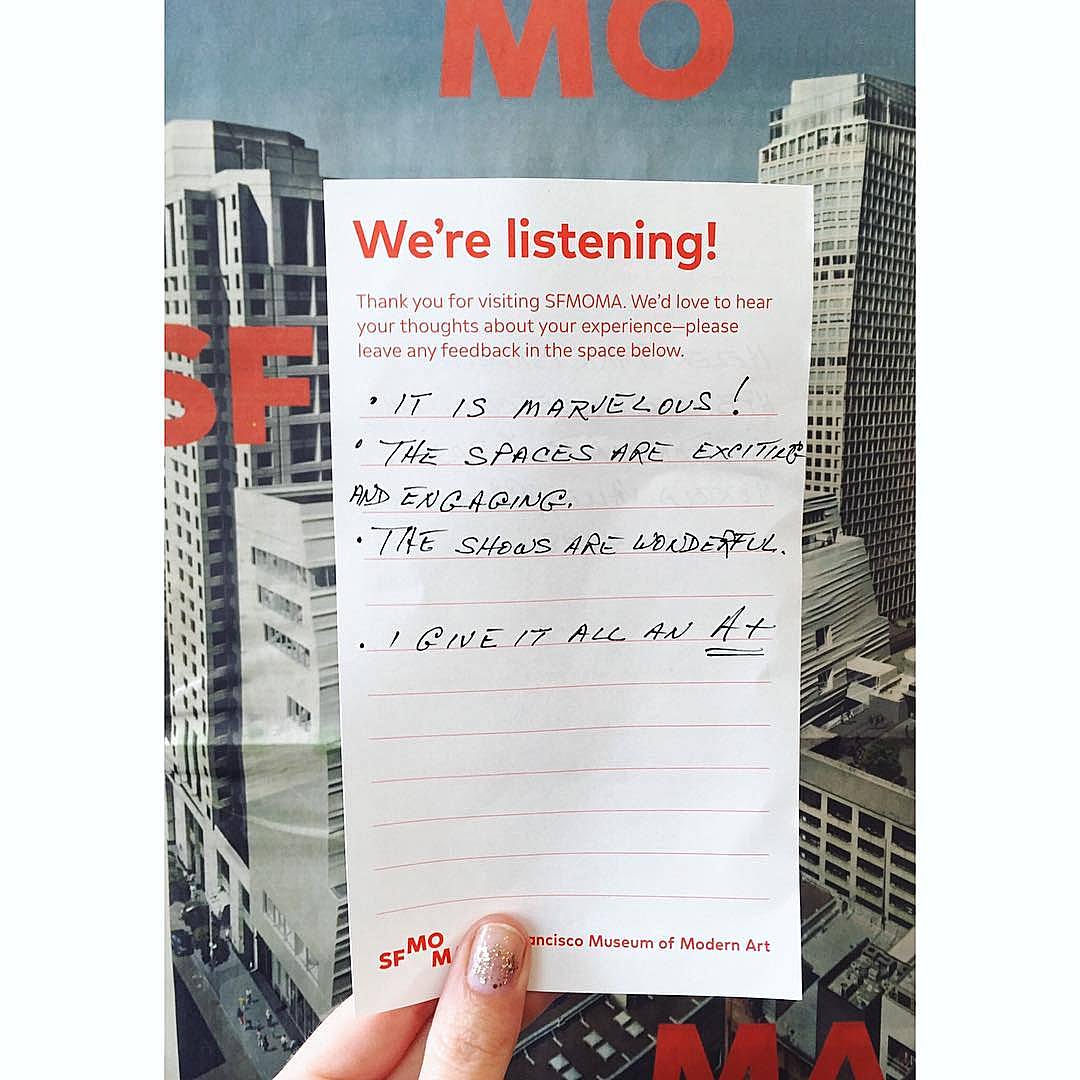 MO
SF
We're listening!
Thank you for visiting SFMOMA. We'd love to hear
your thoughts about your experience—please
leave any feedback in the space below.
• IT IS MARVELOUS!
• THE SPACES ARE EXCITING
AND ENGAGING.
• THE SHOWS ARE WONDERFUL.
• I GIVE IT ALL AN A+
SF MO M
ancisco Museum of Modern Art
MA